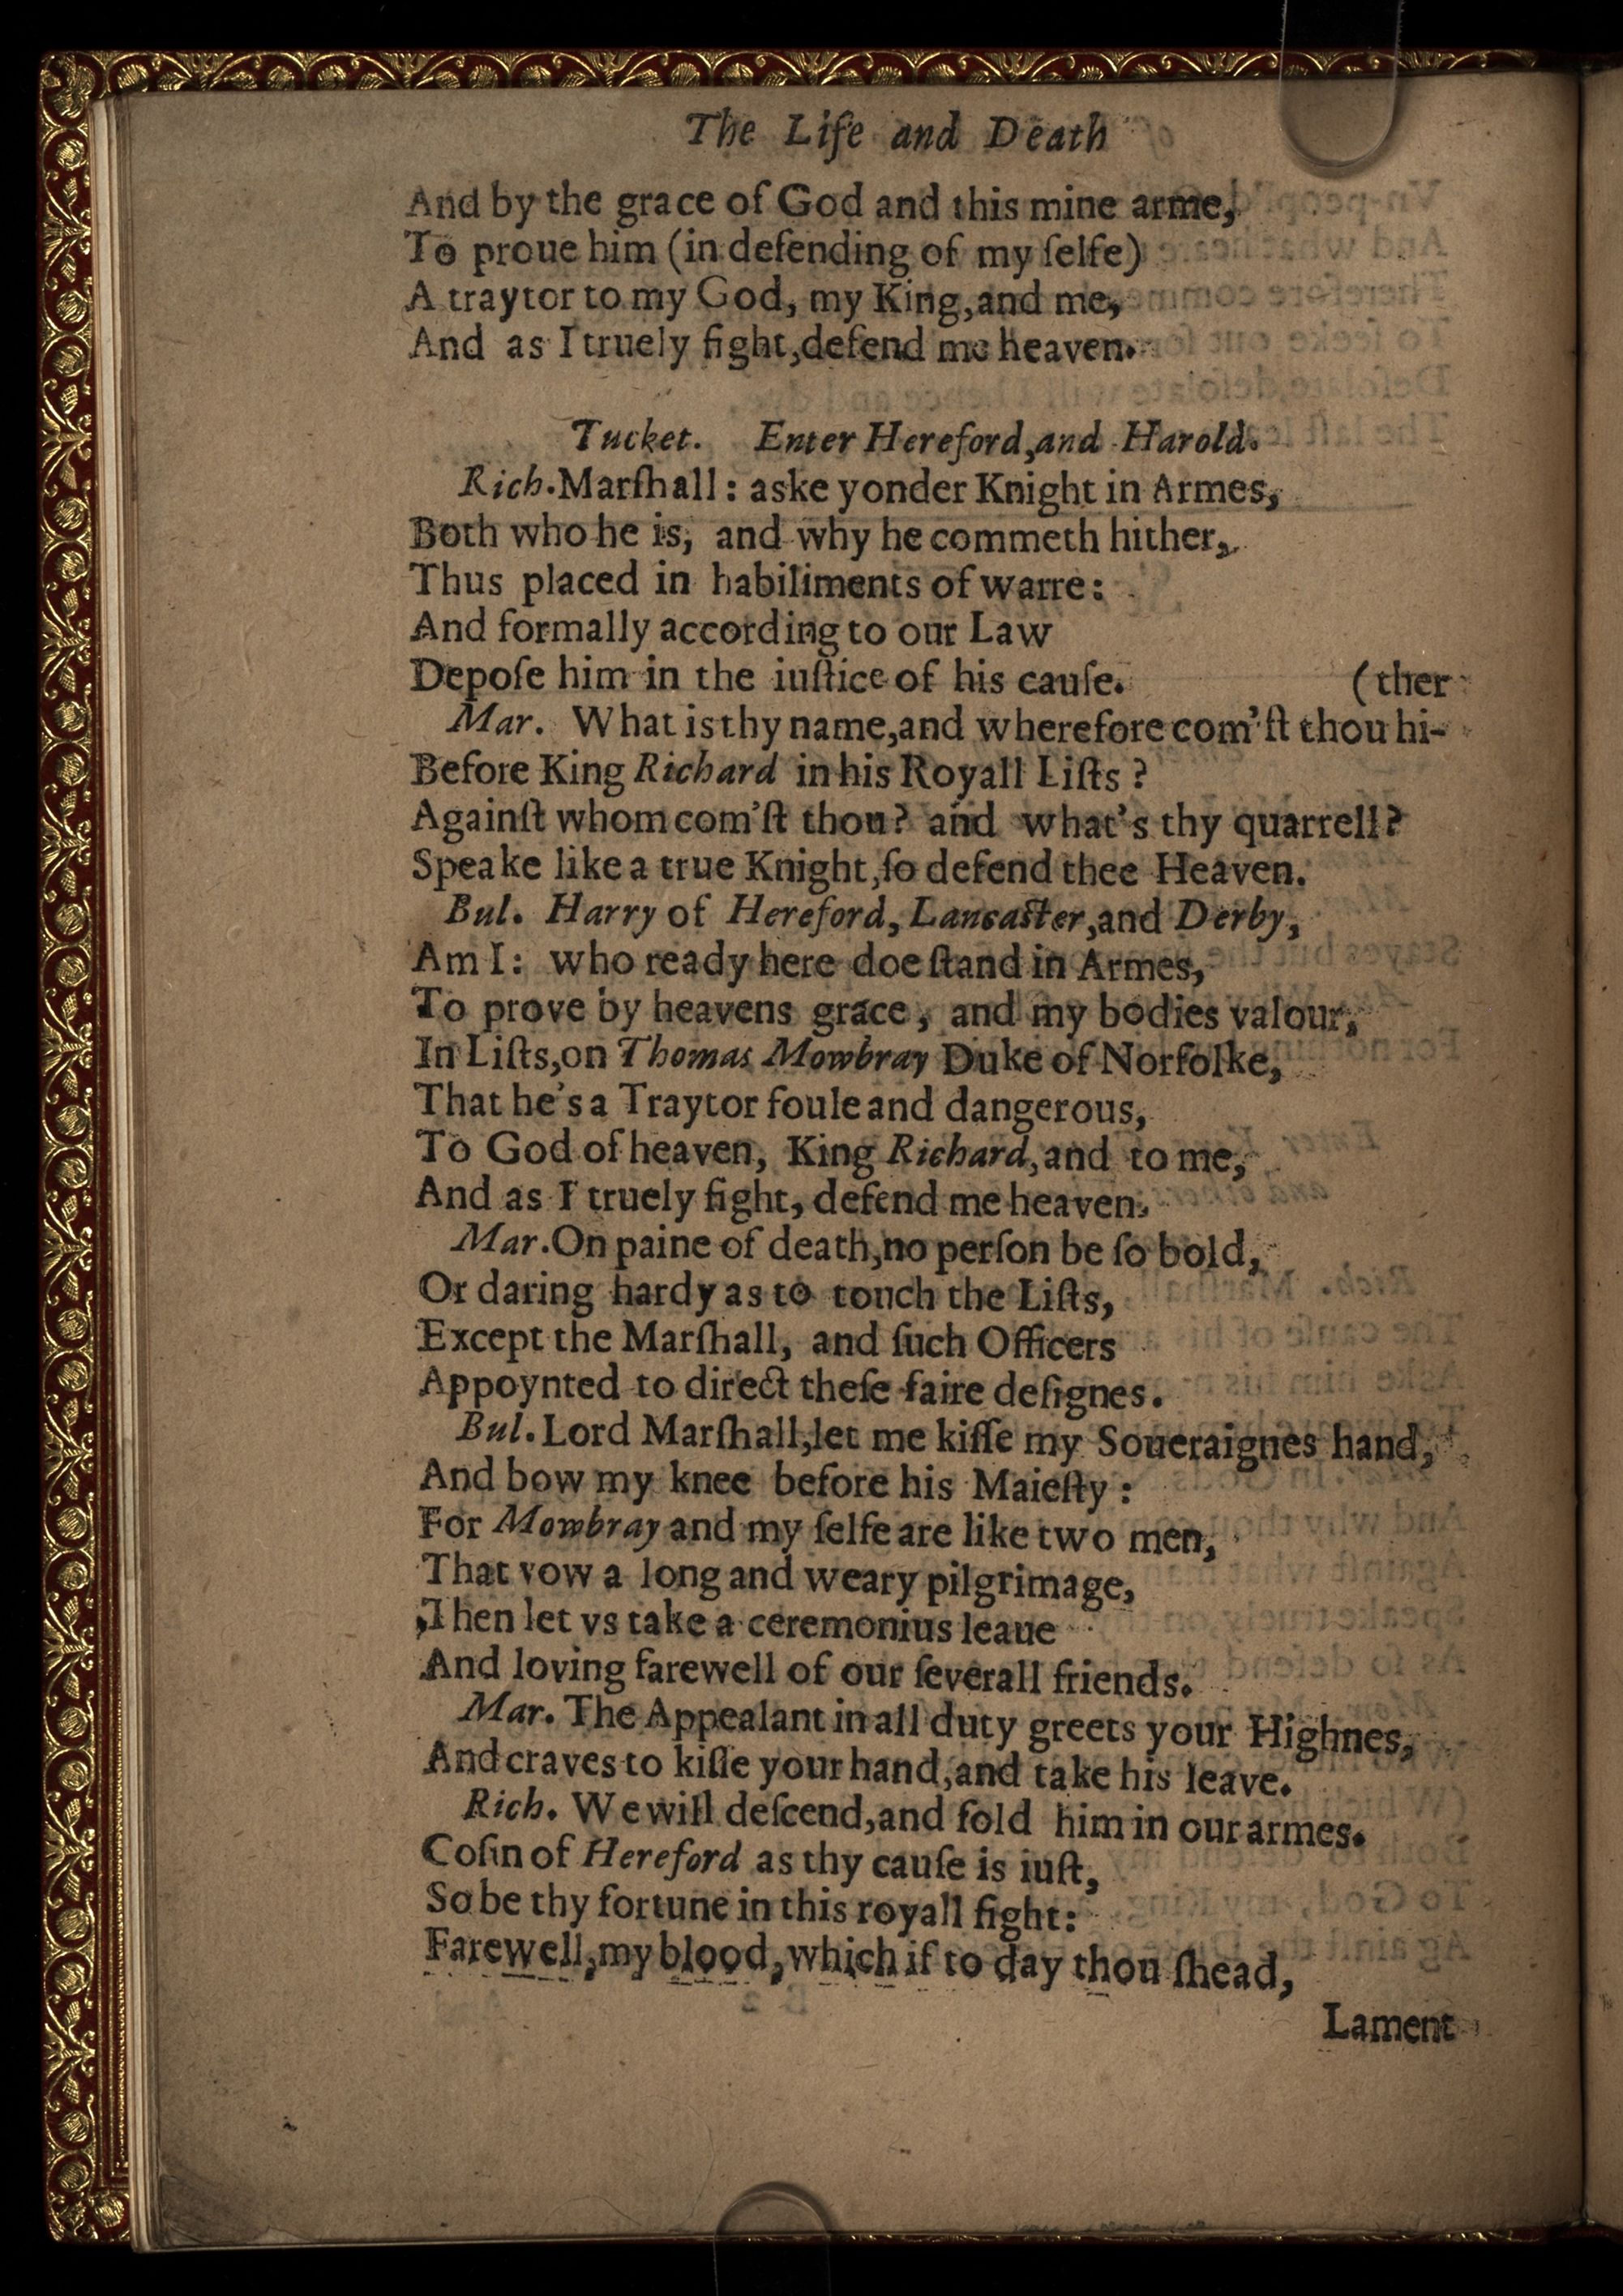 The Life and Death
And by the grace of God and this mine arme,
To proue him (in defending of my ſelfe)
A traytor to my God, my King, and me,
And as I truely fight, defend me heaven.
Tucket. Enter Hereford, and Harold.
Rich. Marſhall: aske yonder Knight in Armes,
Both who he is, and why he commeth hither,
Thus placed in habiliments of warre:
And formally according to our Law
Depoſe him in the iuſtice of his cauſe. (ther
Mar. What is thy name, and wherefore com'ſt thou hi-
Before King Richard in his Royall Liſts?
Againſt whom com'ſt thou? and what's thy quarrell?
Speake like a true Knight, ſo defend thee Heaven.
Bul. Harry of Hereford, Lancaſter, and Derby,
Am I: who ready here doe ſtand in Armes,
To prove by heavens grace, and my bodies valour,
In Liſts, on Thomas Mowbray Duke of Norfolke,
That he's a Traytor foule and dangerous,
To God of heaven, King Richard, and to me,
And as I truely fight, defend me heaven.
Mar. On paine of death, no perſon be ſo bold,
Or daring hardy as to touch the Liſts,
Except the Marſhall, and ſuch Officers
Appoynted to direct theſe faire deſignes.
Bul. Lord Marſhall, let me kiſſe my Soueraignes hand,
And bow my knee before his Maieſty:
For Mowbray and my ſelfe are like two men,
That vow a long and weary pilgrimage,
,Then let vs take a ceremonius leaue
And loving farewell of our ſeverall friends.
Mar. The Appealant in all duty greets your Highnes,
And craves to kiſſe your hand, and take his leave.
Rich. We will deſcend, and fold him in our armes.
Coſin of Hereford as thy cauſe is iuſt,
So be thy fortune in this royall fight:
Farewell, my blood, which if to day thou ſhead,
Lament